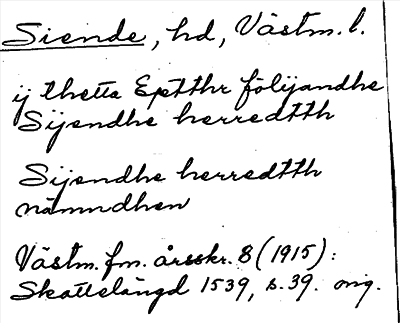 Siende, hd, Västm. l.
ij thetta Eptthr följandhe
Sijendhe herredtth
Sijendhe herredtth
nämndhen
Västm. fm. årsskr. 8 (1915):
Skattelängd 1539, s. 39. orig.